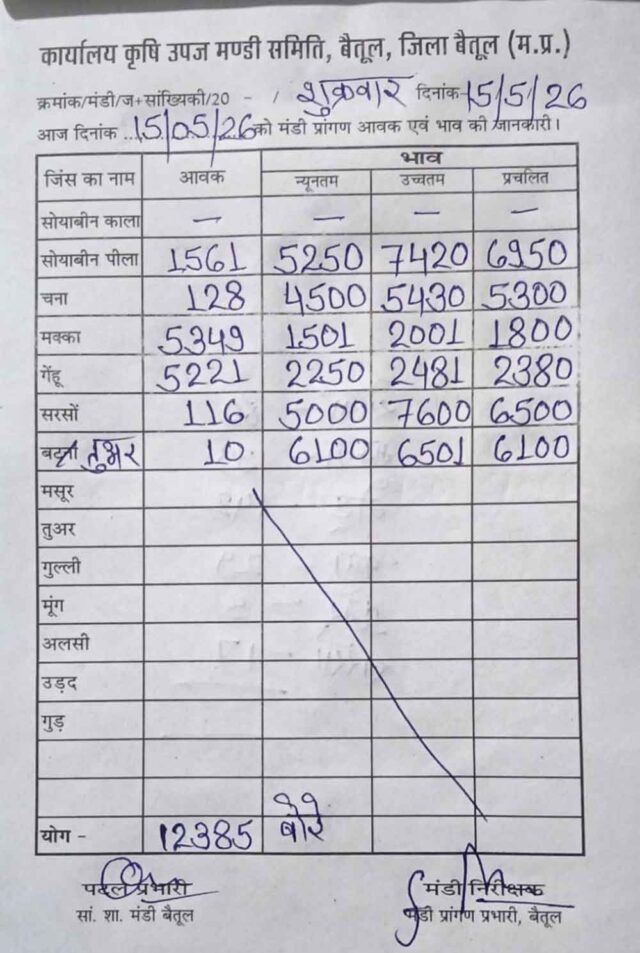 कार्यालय कृषि उपज मण्डी समिति, बैतूल, जिला बैतूल (म.प्र.)
क्रमांक/मंडी/ज+सांख्यिकी/20 - / शुक्रवार दिनांक 15/5/26
आज दिनांक ..15/05/26 को मंडी प्रांगण आवक एवं भाव की जानकारी।
जिंस का नाम आवक भाव
न्यूनतम उच्चतम प्रचलित
सोयाबीन काला — — — —
सोयाबीन पीला 1561 5250 7420 6950
चना 128 4500 5430 5300
मक्का 5349 1501 2001 1800
गेंहू 5221 2250 2481 2380
सरसों 116 5000 7600 6500
तुअर 10 6100 6501 6100
मसूर
तुअर
गुल्ली
मूंग
अलसी
उड़द
गुड़
योग - 12385 बोरे
प्रभारी मंडी निरीक्षक
सां. शा. मंडी बैतूल मंडी प्रांगण प्रभारी, बैतूल